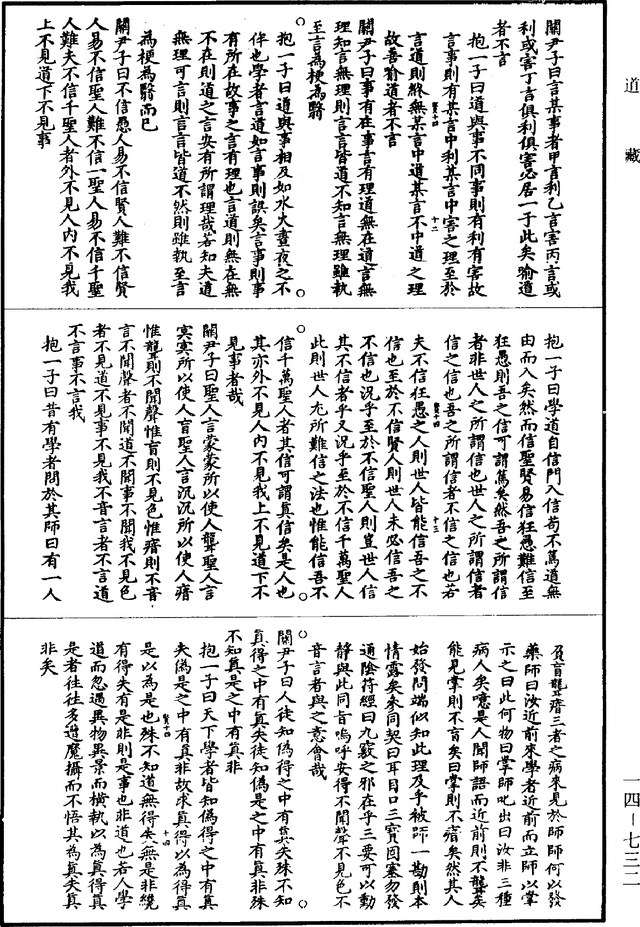 道藏
關尹子曰言某事者甲言利乙言害丙言或
利或害丁言俱利俱害必居一于此矣喻道
者不言
抱一子曰道與事不同事則有利有害故
言事則有某言中利某言中害之理至於
言道則終無某言中道某言不中道之理
故善喻道者不言
關尹子曰事有在事言有理道無在道言無
理知言無理則言言皆道不知言無理雖執
至言為梗為翳
抱一子曰道與事相反如水火晝夜之不
侔也學者言道如言事則誤矣言事則事
有所在故事之言有理也言道則無在無
不在則道之言安有所謂理哉若知夫道
無理可言則言言皆道不然則雖執至言
為梗為翳而已
關尹子曰不信愚人易不信賢人難不信賢
人易不信聖人難不信一聖人易不信千聖
人難夫不信千聖人者外不見人內不見我
上不見道下不見事
抱一子曰學道自信門入信苟不篤道無
由而入矣然而信聖賢易信狂愚難信至
狂愚則吾之信可謂篤矣然吾之所謂信
者非世人之所謂信也世人之所謂信者
信之信也吾之所謂信者不信之信也若
夫不信狂愚之人則世人皆能信吾之不
信也至於不信賢人則世人未必信吾之
不信也況乎至於不信聖人則豈世人信
其不信者乎又況乎至於不信千萬聖人
此則世人尤所難信之法也惟能信吾不
信千萬聖人者其信可謂真信矣是人也
其亦外不見人內不見我上不見道下不
見事者哉
關尹子曰聖人言蒙蒙所以使人聾聖人言
冥冥所以使人盲聖人言沉沉所以使人瘖
惟聾則不聞聲惟盲則不見色惟瘖則不音
言不聞聲者不聞道不聞事不聞我不見色
者不見道不見事不見我不音言者不言道
不言事不言我
抱一子曰昔有學者問於其師曰有一人
及盲聾瘖三者之病來見於師師何以發
藥師曰汝近前來學者近前而立師以掌
示之曰此何物曰掌師叱出曰汝非三種
病人矣噫是人聞師語而近前則不聾矣
能見掌則不盲矣曰掌則不瘖矣然其人
始發問端似知此理及乎被師一勘則本
情露矣參同契曰耳目口三寶固塞勿發
通陰符經曰九竅之邪在乎三要可以動
靜與此同旨嗚呼安得不聞聲不見色不
音言者與之意會哉
關尹子曰人徒知偽得之中有真失殊不知
真得之中有真失徒知偽是之中有真非殊
不知真是之中有真非
抱一子曰天下學者皆知偽得之中有真
失偽是之中有真非故求真得以為真得
是以為是也殊不知道無得失無是非纔
有得失有是非則是事也非道也若人學
道而忽遇異物異景而橫執以為真得真
是者往往多遭魔攝而不悟其為真失真
非矣
一四－七三二